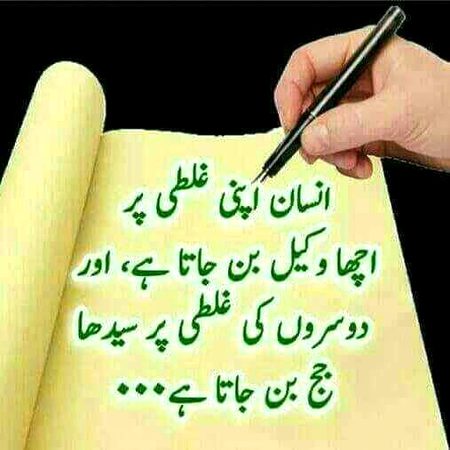 انسان اپنی غلطی پر
اچھا وکیل بن جاتا ہے، اور
دوسروں کی غلطی پر سیدھا
جج بن جاتا ہے...